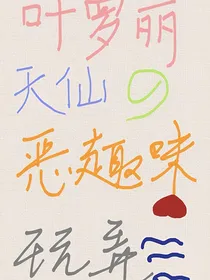 叶罗丽
天仙の
恶趣味
玩弄